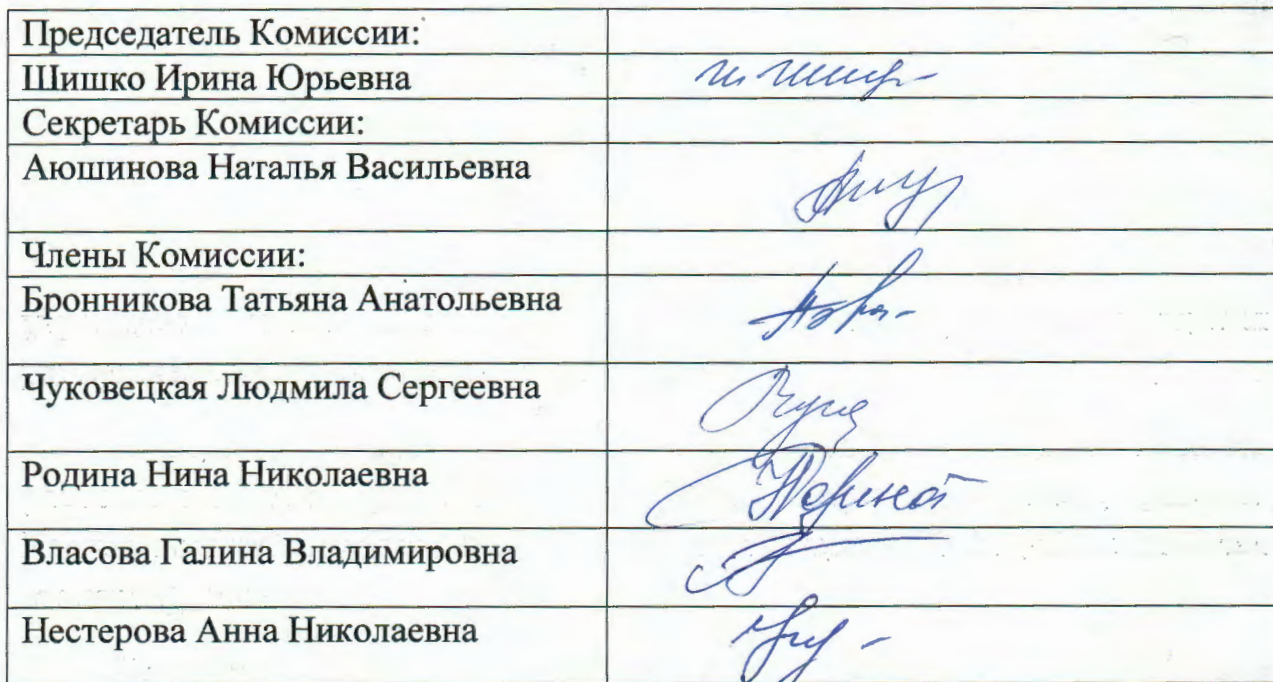 Председатель Комиссии:
Шишко Ирина Юрьевна
Секретарь Комиссии:
Аюшинова Наталья Васильевна
Члены Комиссии:
Бронникова Татьяна Анатольевна
Чуковецкая Людмила Сергеевна
Родина Нина Николаевна
Власова Галина Владимировна
Нестерова Анна Николаевна